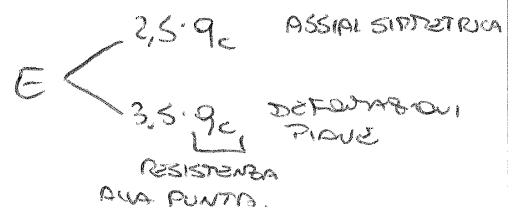 2,5·qc ASSIALSIMMETRICA
E
3,5·qc DEFORMAZIONI
PIANE
RESISTENZA
ALLA PUNTA.